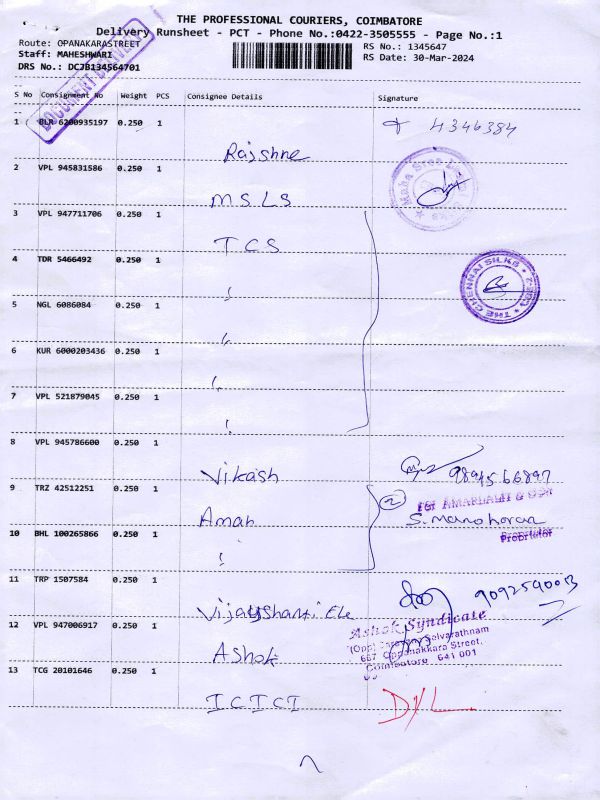 THE PROFESSIONAL COURIERS, COIMBATORE
Delivery Runsheet - PCT - Phone No.:0422-3505555 - Page No.:1
Route: OPANAKARASTREET
RS No.: 1345647
Staff: MAHESHWARI
RS Date: 30-Mar-2024
DRS No.: DCJB134564701
DOCUMENT DELIVERY
S No Consignment No Weight PCS Consignee Details Signature
1 BLR 6200935197 0.250 1 4346384
Rajshree
2 VPL 945831586 0.250 1
MSLS
3 VPL 947711706 0.250 1
TCS
4 TDR 5466492 0.250 1
THE CHENNAI SILKS
5 NGL 6086084 0.250 1
6 KUR 6000203436 0.250 1
7 VPL 521879045 0.250 1
8 VPL 945786600 0.250 1
Vikash
9 TRZ 42512251 0.250 1 2
Aman S. Manoharan
10 BHL 100265866 0.250 1 Proprietor
11 TRP 1507584 0.250 1
Vijayshanti Ele 9092590013
12 VPL 947006917 0.250 1 Ashok Syndicate
Ashok
667 Oppanakkara Street,
Coimbatore 641 001
13 TCG 20101646 0.250 1
ICICI